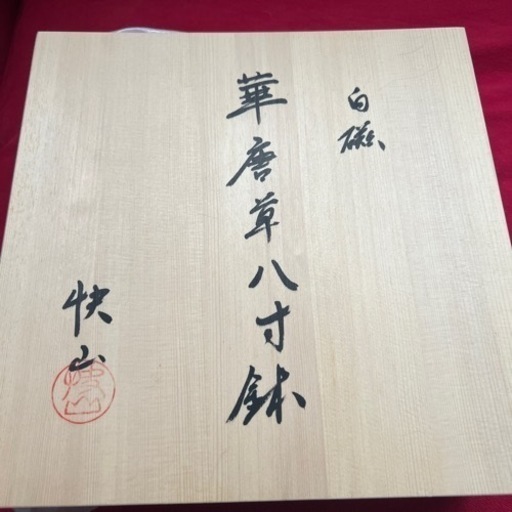 白磁
華唐草八寸鉢
快山